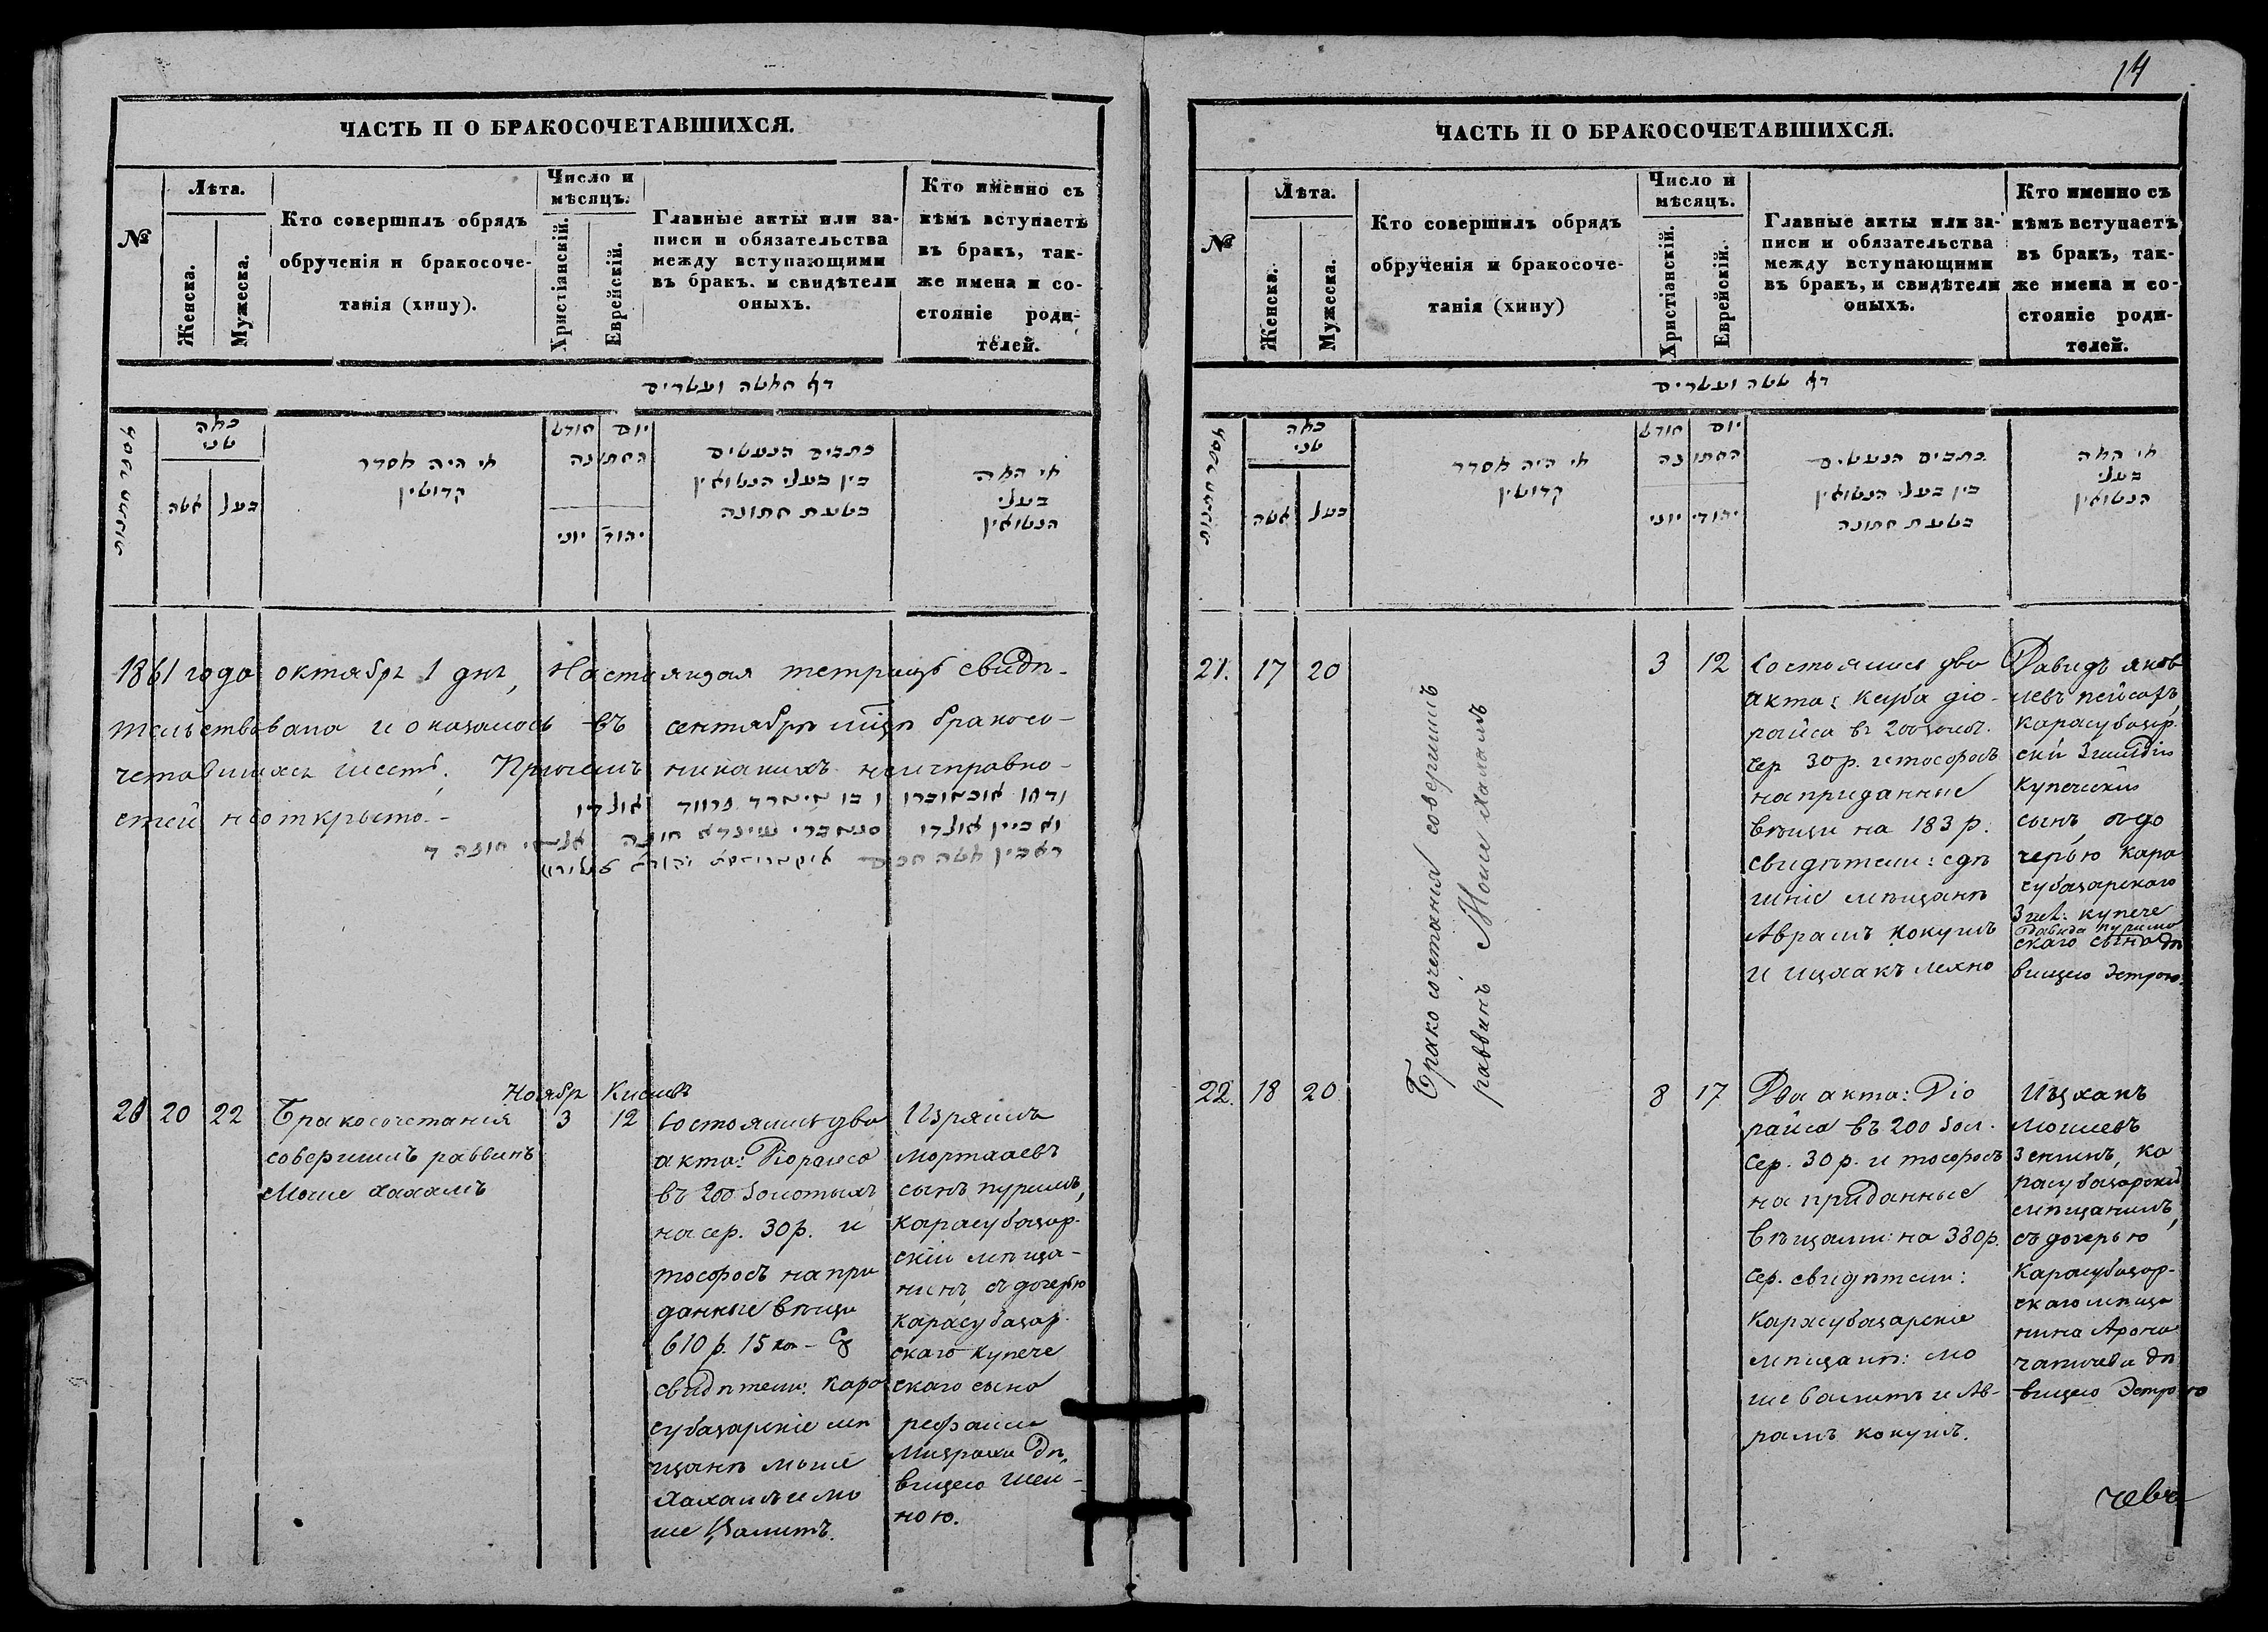 ЧАСТЬ II О БРАКОСОЧЕТАВШИХСЯ.
№
Лѣта.
Женска.
Мужеска.
Кто совершилъ обрядъ
обрученія и бракосоче-
танія (хипу).
Число и
мѣсяцъ.
Христіанскій.
Еврейскій.
Главные акты или за-
писи и обязательства
между вступающими
въ бракъ. и свидѣтели
оныхъ.
Кто именно съ
кѣмъ вступаетъ
въ бракъ, так-
же имена и со-
стояніе роди-
телей.
דף חמשה ועשרים
כמה
שני
אשה
בעל
מי היה מסדר
קדושין
יום חודש
החתונה
יהודי יוני
כתבים הנעשים
בין בעלי הנשואין
בשעת חתונה
מי המה
בעלי
הנשואין
1861 года октябрь 1 дня, Настоящая тетрадь свидѣ-
тельствована и оказалось въ сентябрѣ мцѣ бракосо-
четавшихся шесть. Причемъ никакихъ неисправно-
стей неоткрыто.-
Ноябрь Кислевъ
20 20 22
Бракосочетанія
совершилъ раввинъ
Моше Хахамъ
3 12
Состоялись два
акта: Діорайса
въ 200 Золотыхъ
на сер. 30 р. и
тософосъ на при
данные вѣщи
610 р. 15 коп -
свидѣтели: кара
субазарскіе мѣ
щанѣ моше
Хахамъ и мо
ше Валитъ.
Израиль
мортхаевъ
сынъ пуримъ,
карасубазар-
скій мѣща-
нинъ, съ дочерью
карасубазар-
скаго купече
скаго сына
рефаила
Мизрахи дѣ
вицею Шей-
ною.
14
ЧАСТЬ II О БРАКОСОЧЕТАВШИХСЯ.
№
Лѣта.
Женска.
Мужеска.
Кто совершилъ обрядъ
обрученія и бракосоче-
танія (хипу)
Число и
мѣсяцъ.
Христіанскій.
Еврейскій.
Главные акты или за-
писи и обязательства
между вступающими
въ бракъ, и свидѣтели
оныхъ.
Кто именно съ
кѣмъ вступаетъ
въ бракъ, так-
же имена и со-
стояніе роди-
телей.
דף ששה ועשרים
כמה
שני
אשה
בעל
מי היה מסדר
קדושין
יום חודש
החתונה
יהודי יוני
כתבים הנעשים
בין בעלי הנשואין
בשעת חתונה
מי המה
בעלי
הנשואין
21. 17 20
Бракосочетанія совершилъ
раввинъ Моше Хахамъ
3 12
Состоялись два
акта: Діо-
райса въ 200 золот.
сер 30 р. и тософосъ
на приданные
вѣщи на 183 р.
свидѣтели: здѣ
шніе мѣщанѣ
Аврамъ Кокушъ
и Ицхакъ лехно
Давидъ яков
левъ пейсахъ,
карасубазар-
скій 3 гильдіи
купеческій
сынъ, съ до
черью кара
субазарскаго
3 гил: купече
скаго сына
Давида пуримъ
дѣ
вицею Эстрою.
22. 18 20
8 17
Два акта: Діо
райса въ 200 Зол.
Сер. 30 р. и тософосъ
на приданные
вѣщами: на 380 р.
сер. свидѣтели:
карасубазарскіе
мѣщанѣ: мо
ше Валитъ и Ав-
рамъ кокушъ.
Ицхакъ
Мошевъ
Зенгинъ, ка
расубазарскій
мѣщанинъ,
съ дочерью
карасубазар-
скаго мѣща
нина Арона
Чапичева дѣ
вицею Эстрою